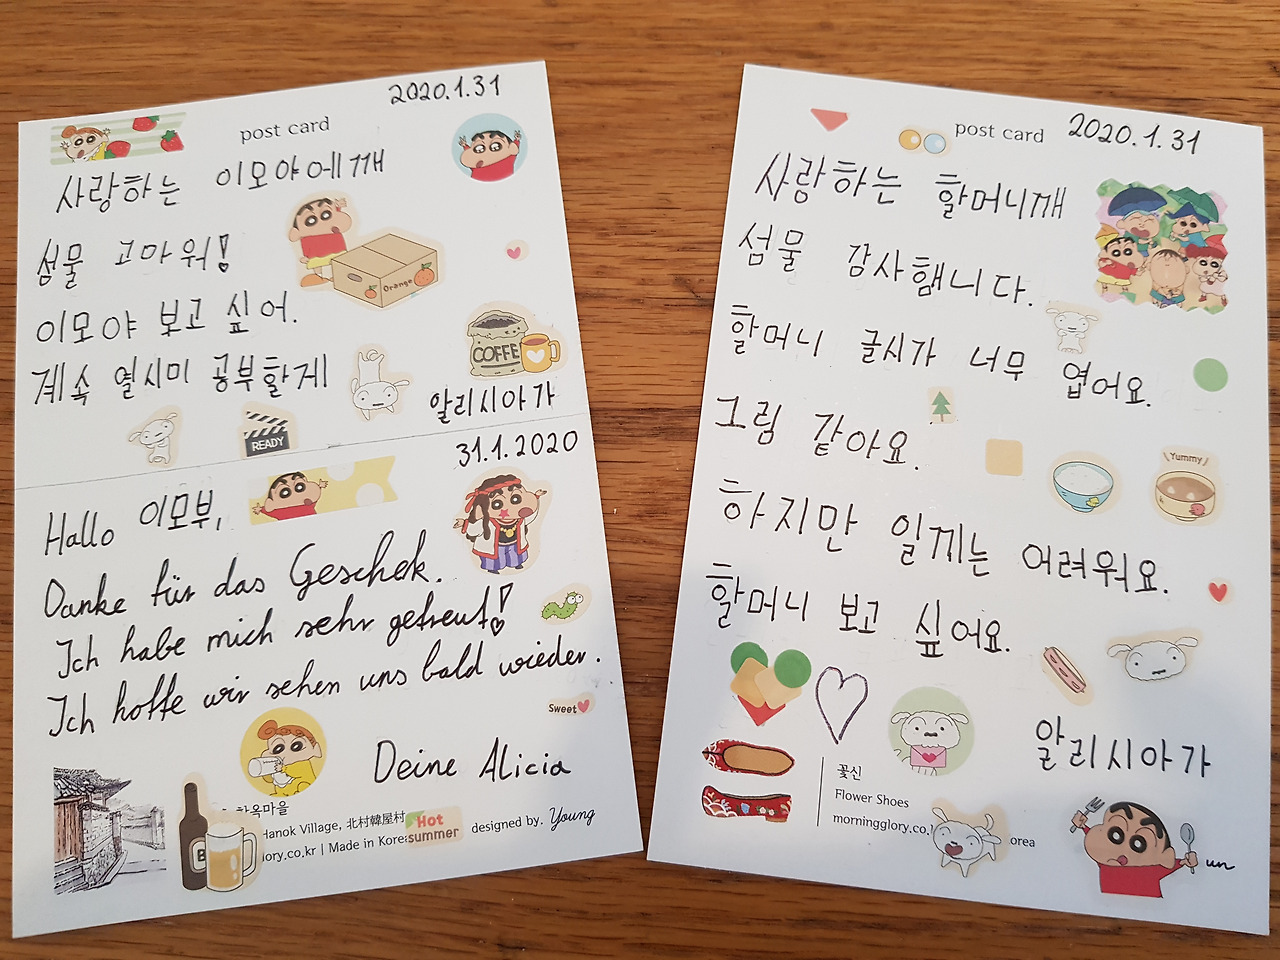 2020.1.31
post card
사랑하는 이모야에깨
섬물 고마워!
Orange
이모야 보고 싶어.
COFFE
계속 열시미 공부할게
알리시아가
READY
31.1.2020
Hallo 이모부,
Danke für das Geschek.
Ich habe mich sehr gefreut!
Ich hoffe wir sehen uns bald wieder.
Sweet
Deine Alicia
한옥마을
Hanok Village, 北村韓屋村
Hot summer
designed by. Young
lory.co.kr | Made in Korea
B
post card
2020.1.31
사랑하는 할머니깨
섬물 감사햄니다.
할머니 글시가 너무 엽어요.
그림 같아요.
Yummy
하지만 일끼는 어려워요.
할머니 보고 싶어요.
알리시아가
꽃신
Flower Shoes
morningglory.co.k
orea
un